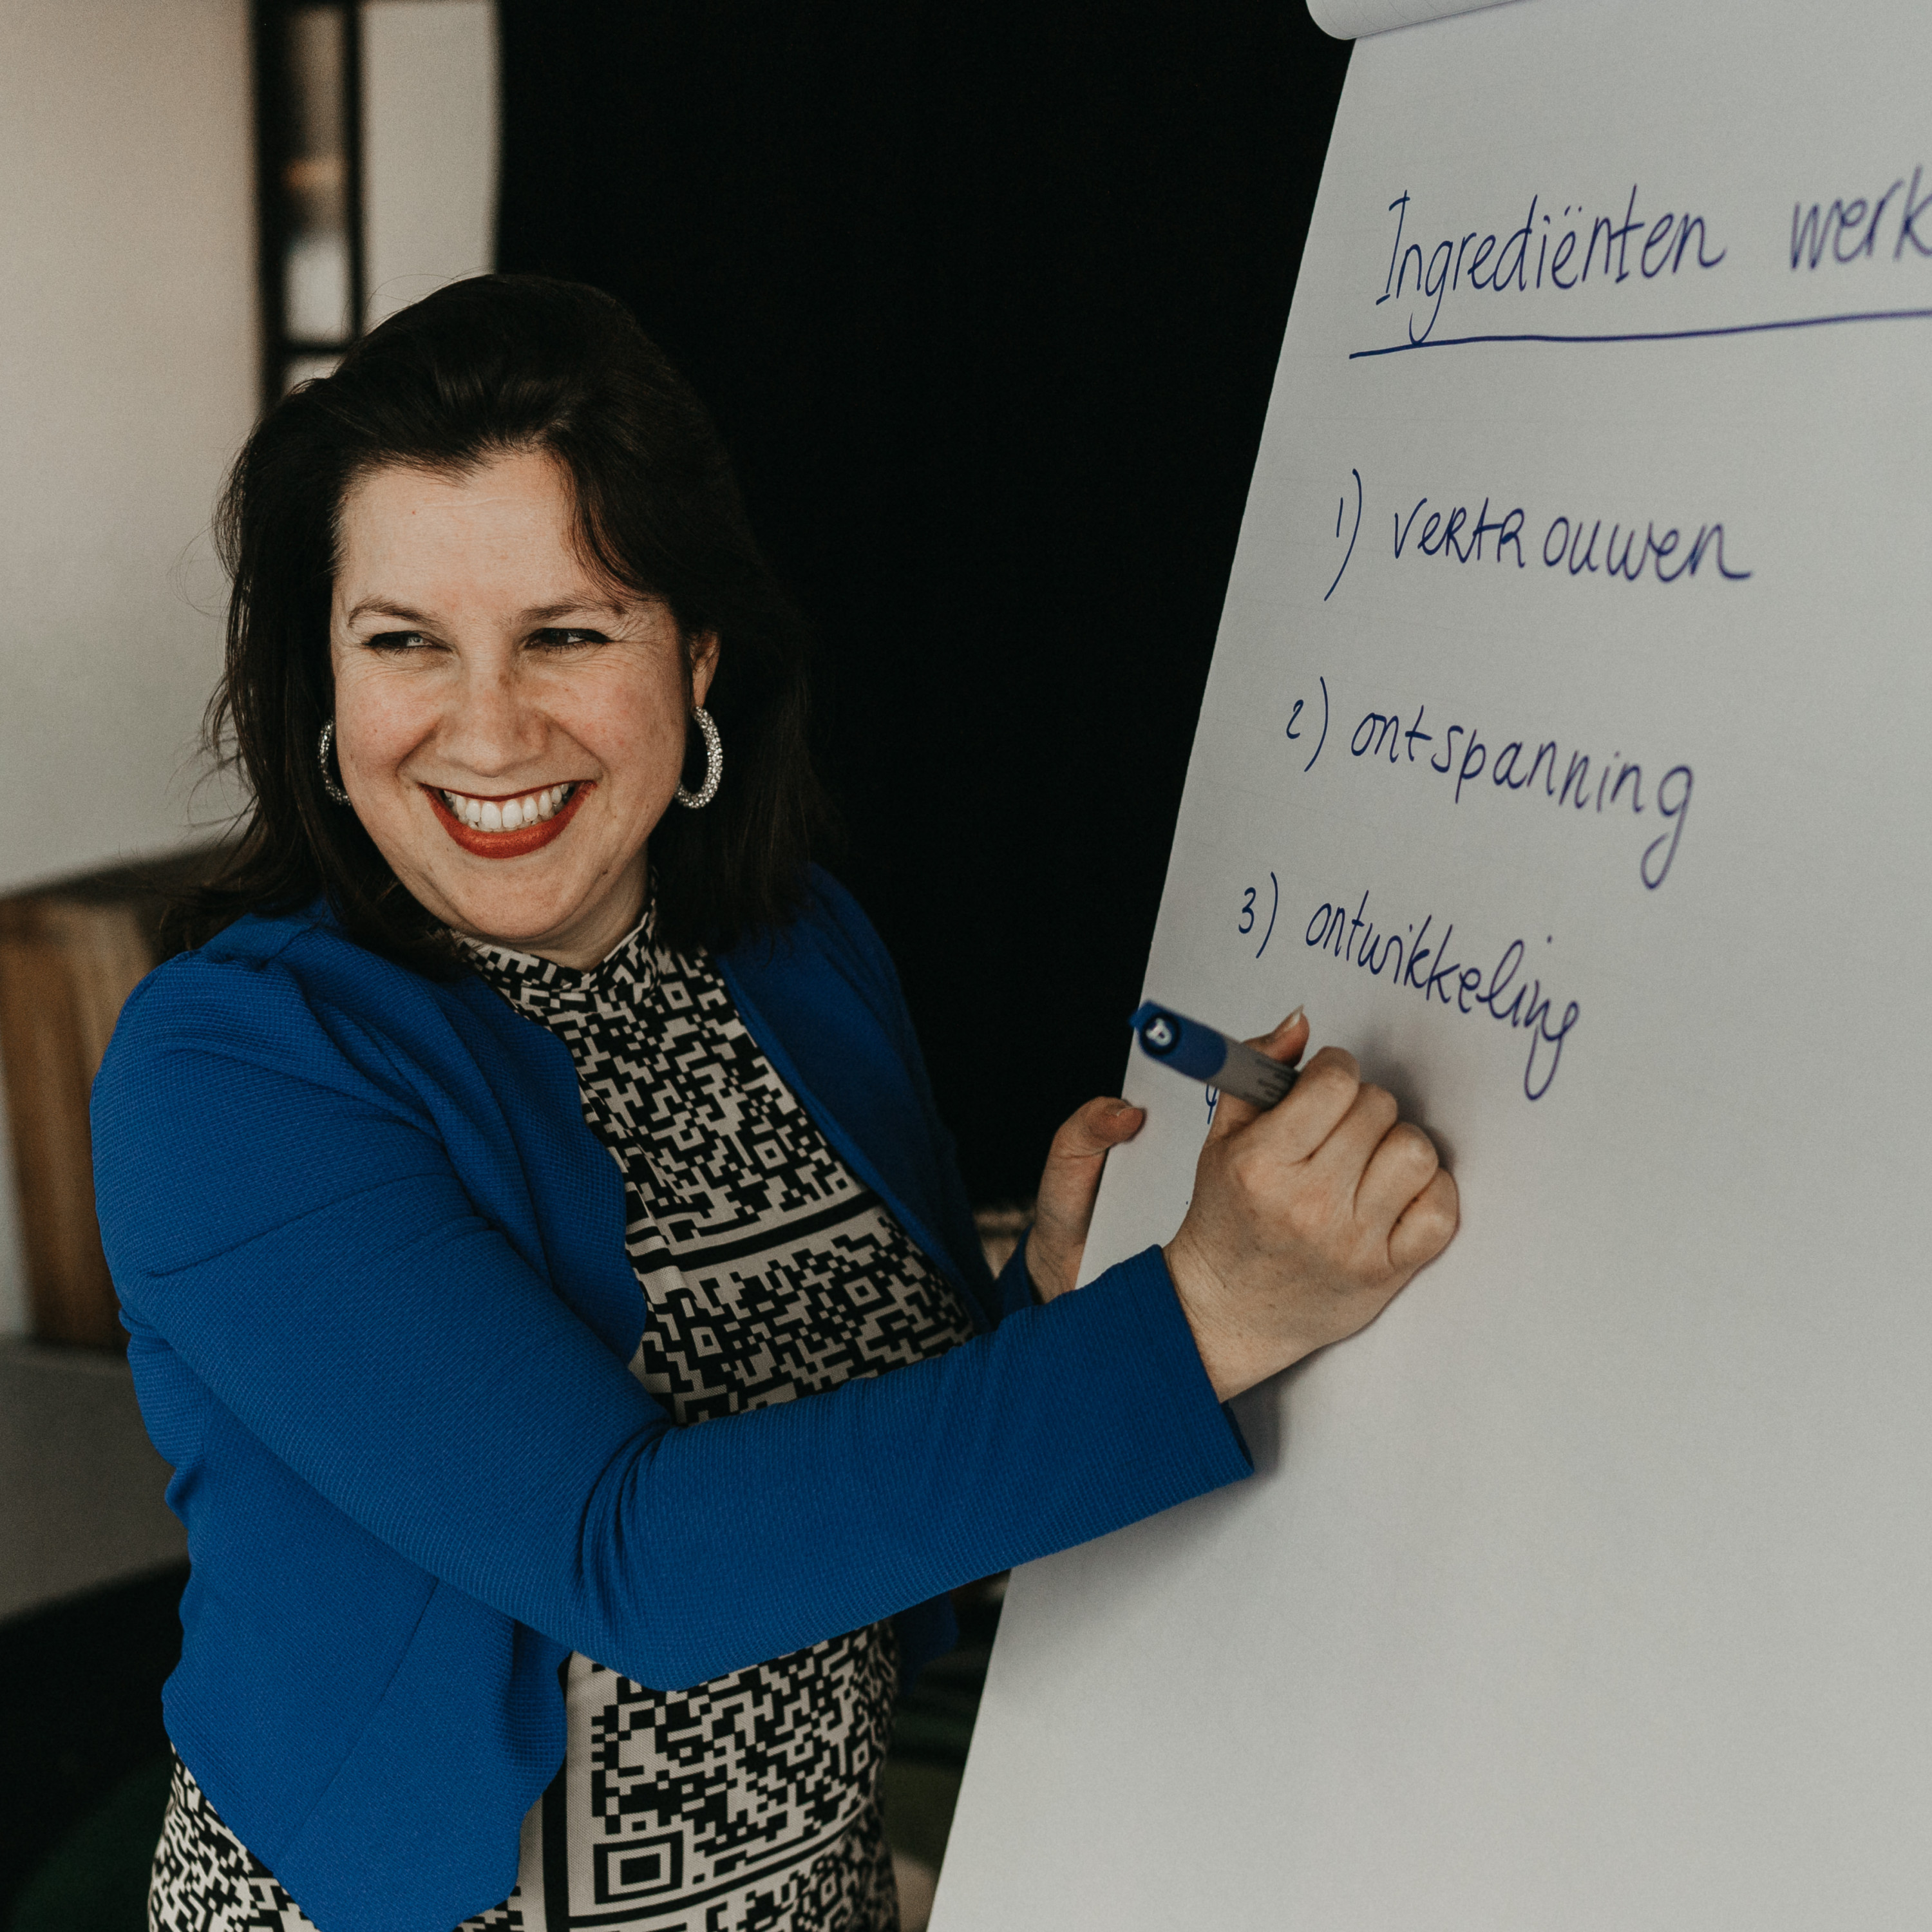 Ingrediënten werk
1) vertrouwen
2) ontspanning
3) ontwikkeling
4